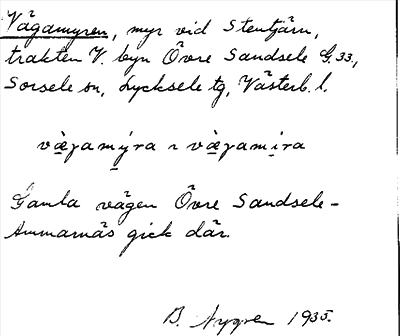 Vägamyren, myr vid Stentjärn,
trakten V. byn Övre Sandsele G. 33,
Sorsele sn, Lycksele tg, Västerb. l.
vä̀gamýra ~ vä̀gamira
Gamla vägen Övre Sandsele-
Ammarnäs gick där.
B. Nygren 1935.